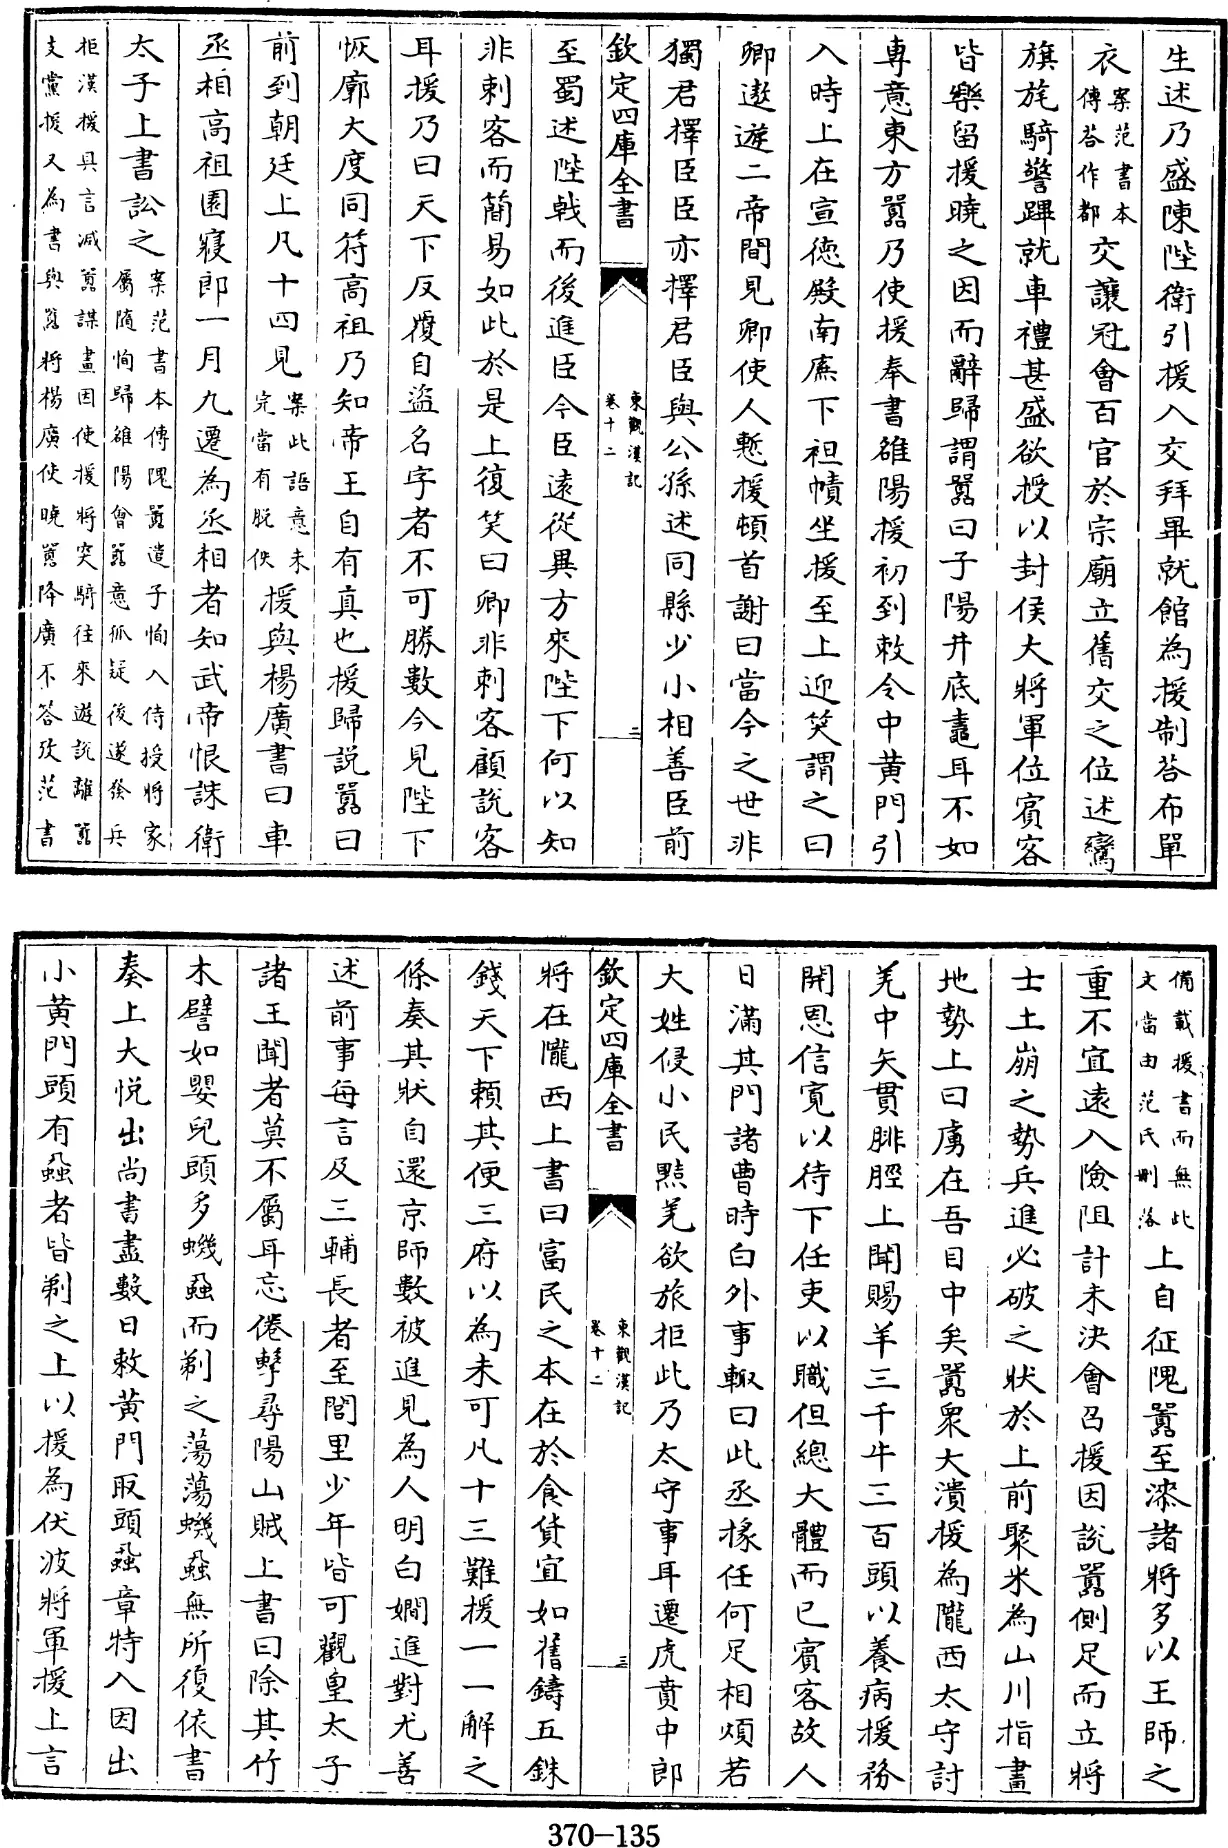 生述乃盛陳陛衛引援入交拜畢就館為援制荅布單
衣案范書本傳荅作都交讓冠會百官於宗廟立舊交之位述鸞
旗旄騎警蹕就車禮甚盛欲授以封侯大將軍位賓客
皆樂留援曉之因而辭歸謂囂曰子陽井底鼃耳不如
專意東方囂乃使援奉書雒陽援初到敕令中黄門引
入時上在宣徳殿南廡下袒幘坐援至上迎笑謂之曰
卿遨遊二帝間見卿使人慙援頓首謝曰當今之世非
獨君擇臣臣亦擇君臣與公孫述同縣少小相善臣前
欽定四庫全書
東觀漢記
卷十二
二
至蜀述陛戟而後進臣今臣遠從異方來陛下何以知
非刺客而簡易如此於是上復笑曰卿非刺客顧説客
耳援乃曰天下反覆自盜名字者不可勝數今見陛下
恢廓大度同符高祖乃知帝王自有真也援歸説囂曰
前到朝廷上凡十四見案此語意未完當有脱佚援與楊廣書曰車
丞相高祖園寢郎一月九遷為丞相者知武帝恨誅衛
太子上書訟之案范書本傳隗囂遣子恂入侍授將家屬隨恂歸雒陽會囂意狐疑後遂發兵
拒漢援具言滅囂謀畫因使援將突騎往來遊説離囂
支黨援又為書與囂將楊廣使曉囂降廣不答攷范書
備載援書而無此
文當由范氏刪落上自征隗囂至漆諸將多以王師之
重不宜遠入險阻計未決會召援因説囂側足而立將
士土崩之勢兵進必破之狀於上前聚米為山川指畫
地勢上曰虜在吾目中矣囂衆大潰援為隴西太守討
羌中矢貫腓脛上聞賜羊三千牛三百頭以養病援務
開恩信寛以待下任吏以職但總大體而已賓客故人
日滿其門諸曹時白外事輙曰此丞掾任何足相煩若
大姓侵小民黠羌欲旅拒此乃太守事耳遷虎賁中郎
欽定四庫全書
東觀漢記
卷十二
三
將在隴西上書曰富民之本在於食貨宜如舊鑄五銖
錢天下賴其便三府以為未可凡十三難援一一解之
條奏其狀自還京師數被進見為人明白嫺進對尤善
述前事每言及三輔長者至閭里少年皆可觀皇太子
諸王聞者莫不屬耳忘倦擊尋陽山賊上書曰除其竹
木譬如嬰兒頭多蟣蝨而剃之蕩蕩蟣蝨無所復依書
奏上大悦出尚書盡數日敕黄門取頭蝨章特入因出
小黄門頭有蝨者皆剃之上以援為伏波將軍援上言
370-135